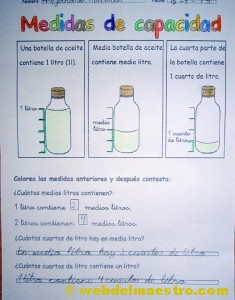 Medidas de capacidad
Una botella de aceite contiene 1 litro (1l).
Media botella de aceite contiene medio litro.
La cuarta parte de la botella contiene 1 cuarto de litro.
1 litro
medio litro
1 cuarto de litro
Colorea las medidas anteriores y después contesta:
¿Cuántos medios litros contienen?
1 litro contiene 2 medios litros.
2 litros contienen 4 medios litros.
¿Cuántos cuartos de litro hay en medio litro?
En medio litro hay 2 cuartos de litro
¿Cuántos cuartos de litro contiene un litro?
1 litro contiene 4 cuartos de litro
© webdelmaestro.com